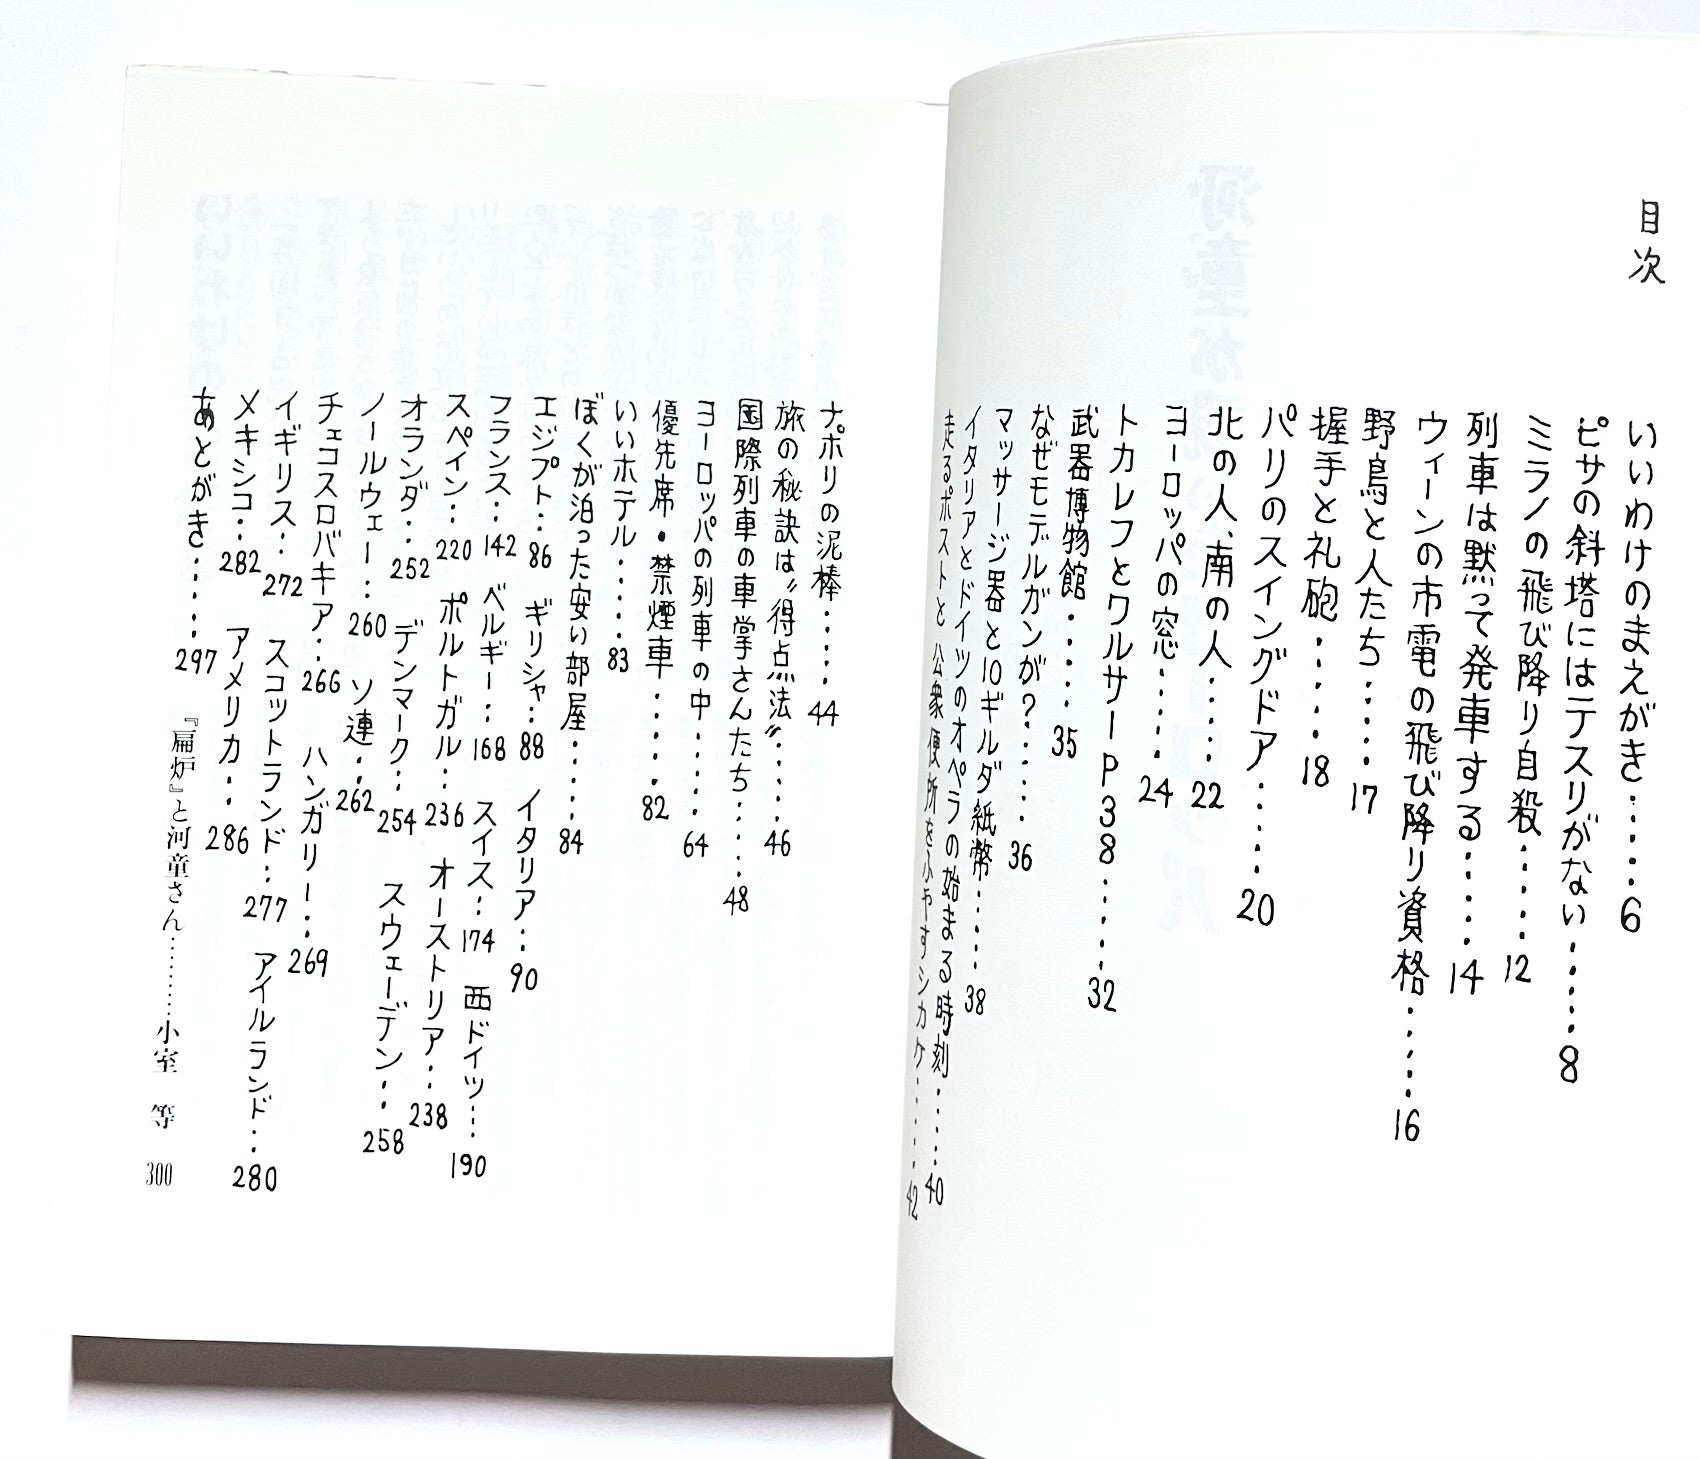 目次
いいわけのまえがき……6
ピサの斜塔にはテスリがない……8
ミラノの飛び降り自殺……12
列車は黙って発車する……14
ウィーンの市電の飛び降り資格……16
野鳥と人たち……17
握手と礼砲……18
パリのスイングドア……20
北の人、南の人……22
ヨーロッパの窓……24
トカレフとワルサーP38……32
武器博物館……35
なぜモデルガンが?……36
マッサージ器と10ギルダ紙幣……38
イタリアとドイツのオペラの始まる時刻……40
走るポストと公衆便所をふやすシカケ……42
ナポリの泥棒……44
旅の秘訣は〝得点法〟……46
国際列車の車掌さんたち……48
ヨーロッパの列車の中……64
優先席・禁煙車……82
いいホテル……83
ぼくが泊った安い部屋……84
エジプト…86 ギリシャ…88 イタリア…90
フランス…142 ベルギー…168 スイス…174 西ドイツ…190
スペイン…220 ポルトガル…236 オーストリア…238
オランダ…252 デンマーク…254 スウェーデン…258
ノールウェー…260 ソ連…262
チェコスロバキア…266 ハンガリー…269
イギリス…272 スコットランド…277 アイルランド…280
メキシコ…282 アメリカ…286
あとがき……297
『扁炉』と河童さん………小室 等 300